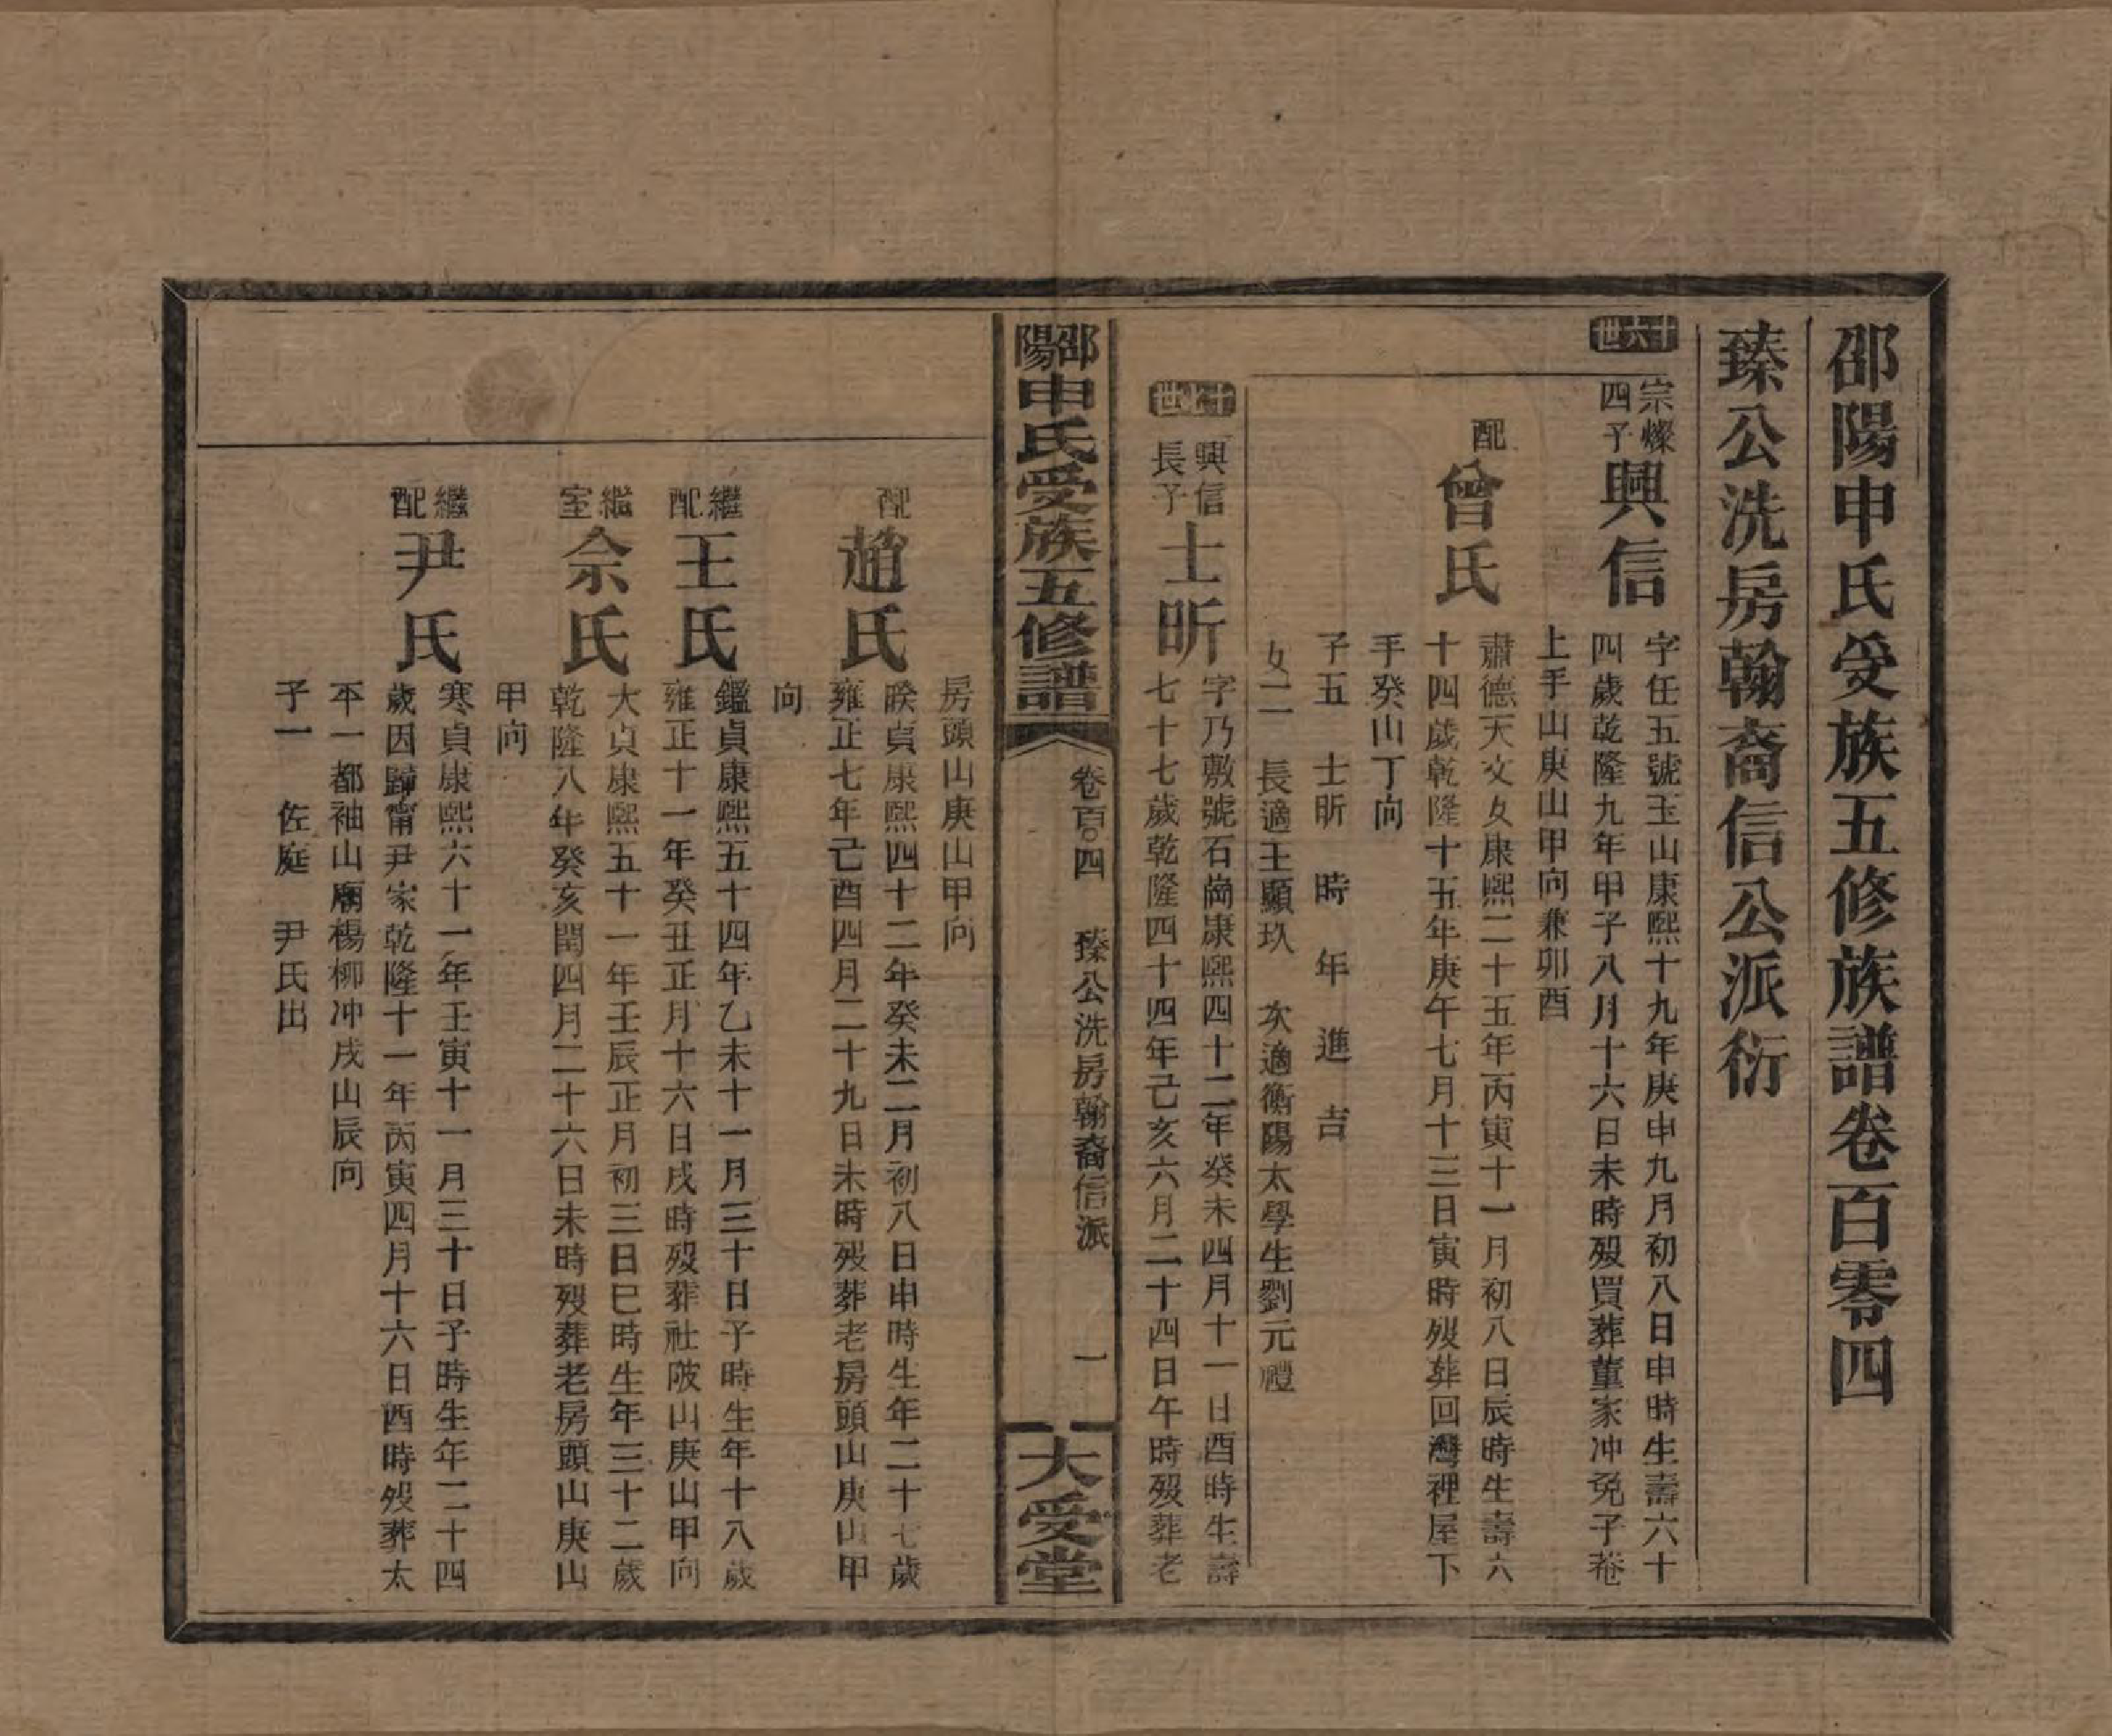 邵陽申氏受族五修族譜卷百零四
臻公洗房翰裔信公派衍
十六世
宗燦四子興信
字任五號玉山康熙十九年庚申九月初八日申時生壽六十
四歲乾隆九年甲子八月十六日未時歿買葬董家冲免子菴
上手山庚山甲向兼卯酉
配曾氏
肅德天文女康熙二十五年丙寅十一月初八日辰時生壽六
十四歲乾隆十五年庚午七月十三日寅時歿葬回灣裡屋下
手癸山丁向
子五 士昕 時 年 進 吉
女二 長適王顯玖 次適衡陽太學生劉元禮
十七世
興信長子士昕
字乃敷號石崗康熙四十二年癸未四月十一日酉時生壽
七十七歲乾隆四十四年己亥六月二十四日午時歿葬老
邵陽申氏受族五修譜
卷百〇四 臻公洗房翰裔信派 一
大受堂
房頭山庚山甲向
配趙氏
睽貞康熙四十二年癸未二月初八日申時生年二十七歲
雍正七年己酉四月二十九日未時歿葬老房頭山庚山甲
向
繼配王氏
鑑貞康熙五十四年乙未十一月三十日子時生年十八歲
雍正十一年癸丑正月十六日戌時歿葬社陂山庚山甲向
繼室佘氏
大貞康熙五十一年壬辰正月初三日巳時生年三十二歲
乾隆八年癸亥閏四月二十六日未時歿葬老房頭山庚山
甲向
繼配尹氏
寒貞康熙六十一年壬寅十一月三十日子時生年二十四
歲因歸甯尹家乾隆十一年丙寅四月十六日酉時歿葬太
平一都袖山廟楊柳冲戌山辰向
子一 佐庭 尹氏出